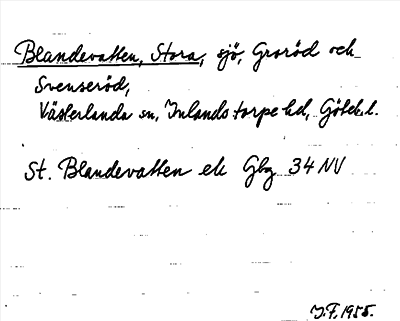 Blandevatten, Stora, sjö, Groröd och
Svenseröd,
Västerlanda sn, Inlands torpe hd, Göteb. l.
St. Blandevatten ek Gbg 34 NV
J.F. 1955.